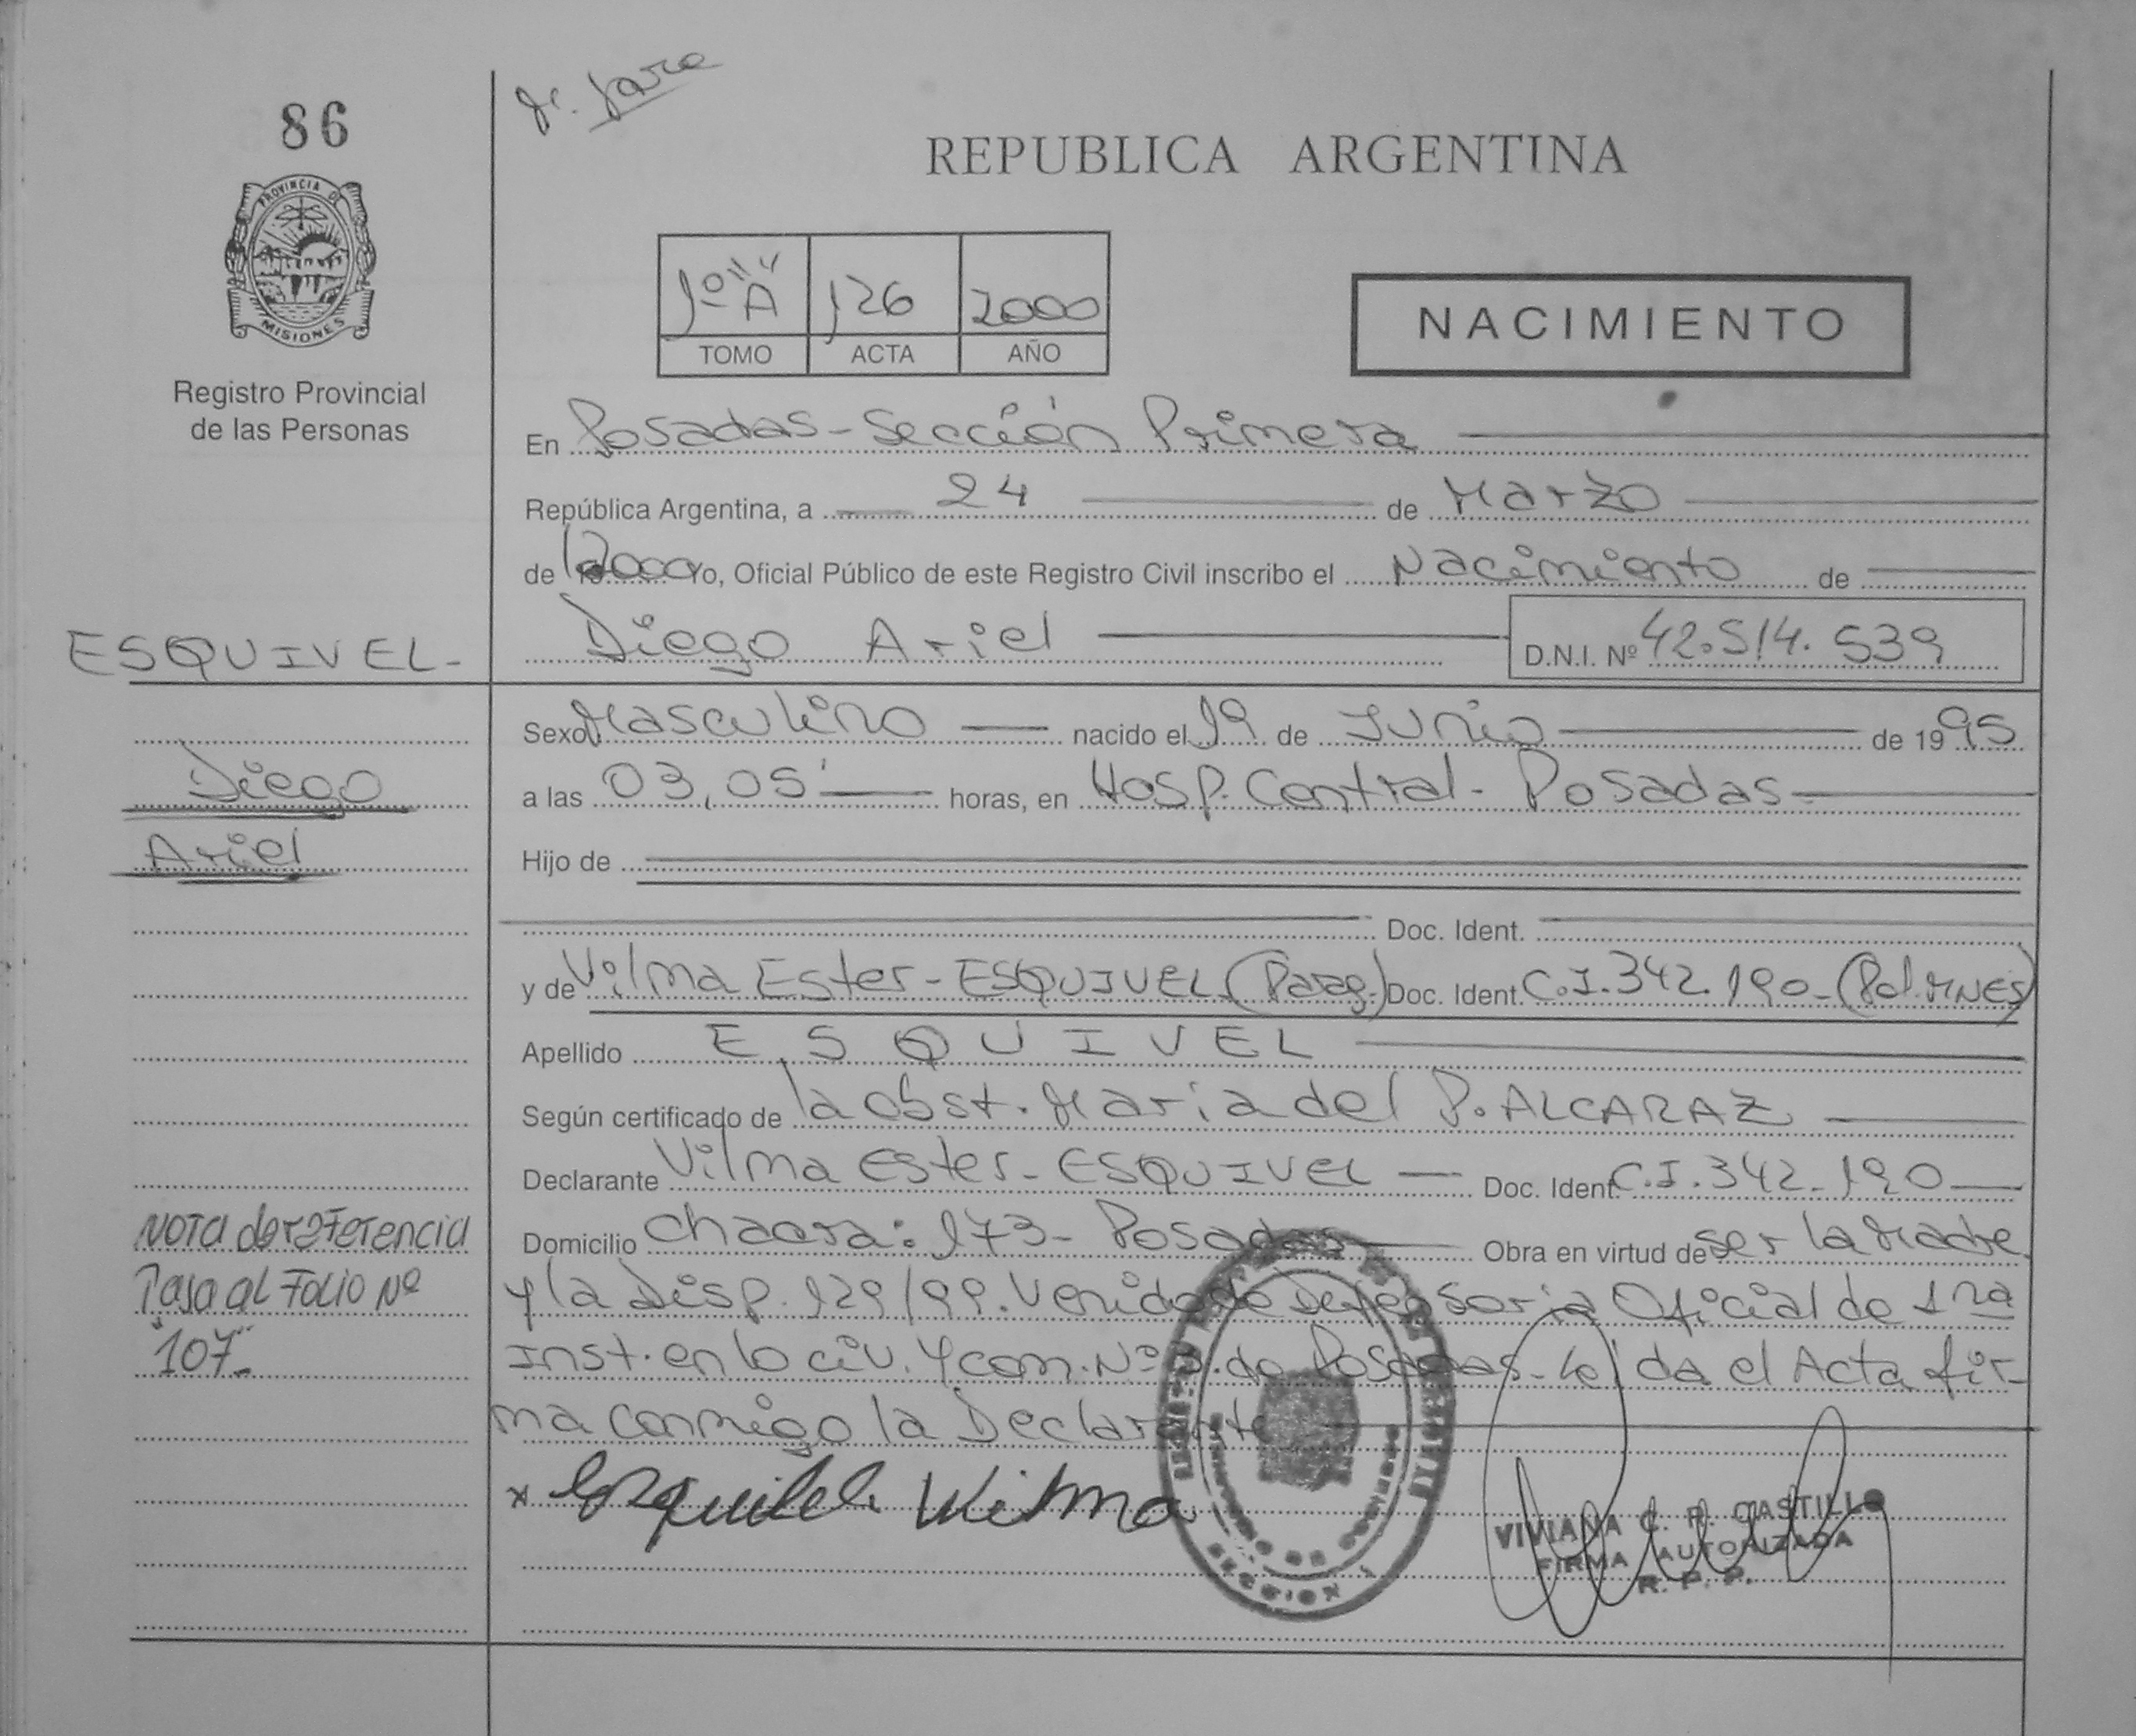 86
Jara
REPUBLICA ARGENTINA
PROVINCIA DE
MISIONES
1º "A" 126 2000
TOMO ACTA AÑO
NACIMIENTO
Registro Provincial
de las Personas
En Posadas - Sección Primera
República Argentina, a 24 de Marzo
de 2000 Yo, Oficial Público de este Registro Civil inscribo el Nacimiento de
ESQUIVEL- Diego Ariel D.N.I. Nº 42.514.539
Sexo Masculino nacido el 19 de Junio de 1995
Diego a las 03,05' horas, en Hosp. Central - Posadas
Ariel Hijo de
Doc. Ident.
y de Vilma Ester - ESQUIVEL (Parag.) Doc. Ident. C.I. 342.190 - (Pol. MNES)
Apellido ESQUIVEL
Según certificado de la obst. Maria del P. ALCARAZ
Declarante Vilma Ester - ESQUIVEL Doc. Ident. C.I. 342.190
Nota de referencia Domicilio Chacra: 173 - Posadas Obra en virtud de ser la Madre
Pasa al Folio Nº y la Disp. 129/99. Venido de Defensoria Oficial de 1ra
"107" Inst. en lo civ. y com. Nº de Posadas - Leída el Acta fir-
ma conmigo la Declarante
x Esquivel Vilma
VIVIANA C. R. CASTILLO
FIRMA AUTORIZADA
R. P. P.
SECCION 1